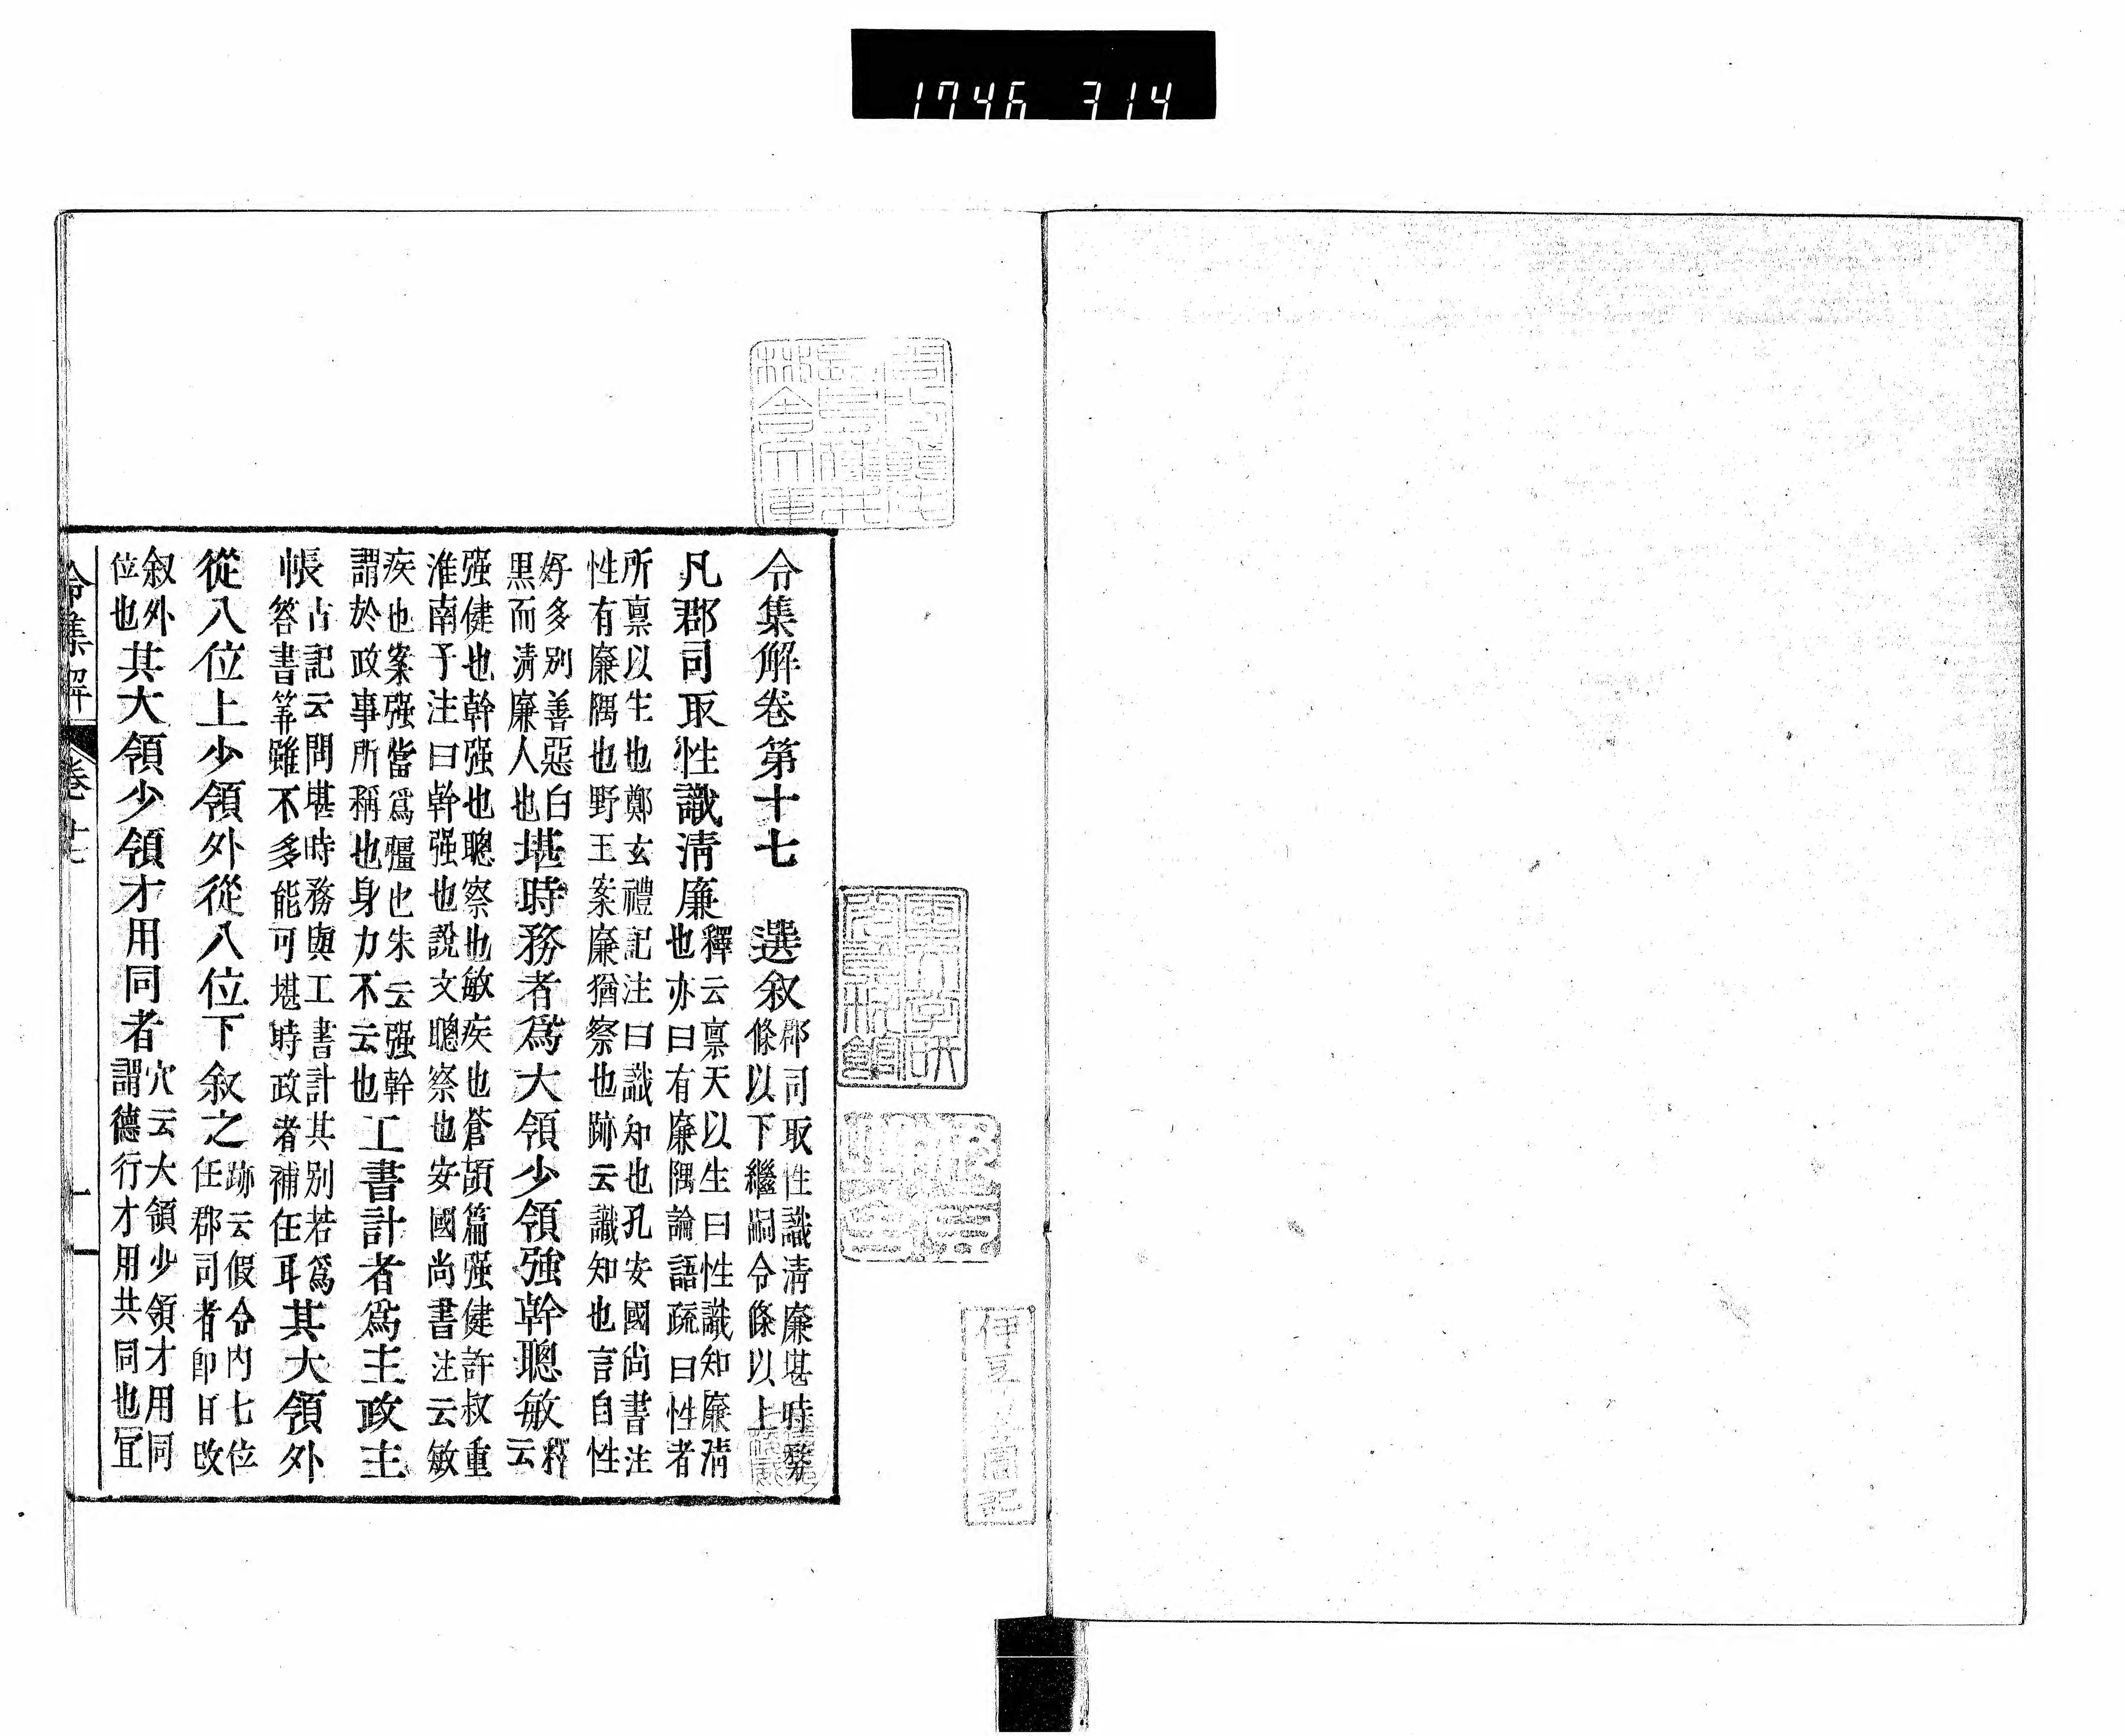 1746 314
令集解卷第十七　選叙郡司取性識清廉堪時務條以下繼嗣令條以上
凡郡司取性識清廉釋云禀天以生曰性識知廉清也亦曰有廉隅論語疏曰性者
所禀以生也鄭玄禮記注曰識知也孔安國尚書注性有廉隅也野王案廉猶察也跡云識知也言自性
好多別善惡白黒而清廉人也堪時務者爲大領少領強幹聰敏釋云
强健也幹强也聰察也敏疾也蒼頡篇强健許叔重淮南子注曰幹强也說文聰察也安國尚書注云敏
疾也案强當爲彊也朱云强幹謂於政事所稱也身力不云也工書計者爲主政主
帳古記云問堪時務與工書計其別若爲答書筭雖不多能可堪時政者補任耳其大領外
從八位上少領外從八位下叙之跡云假令內七位任郡司者卽日改
叙外位也其大領少領才用同者穴云大領少領才用同謂德行才用共同也冝
令集解　卷十七　一